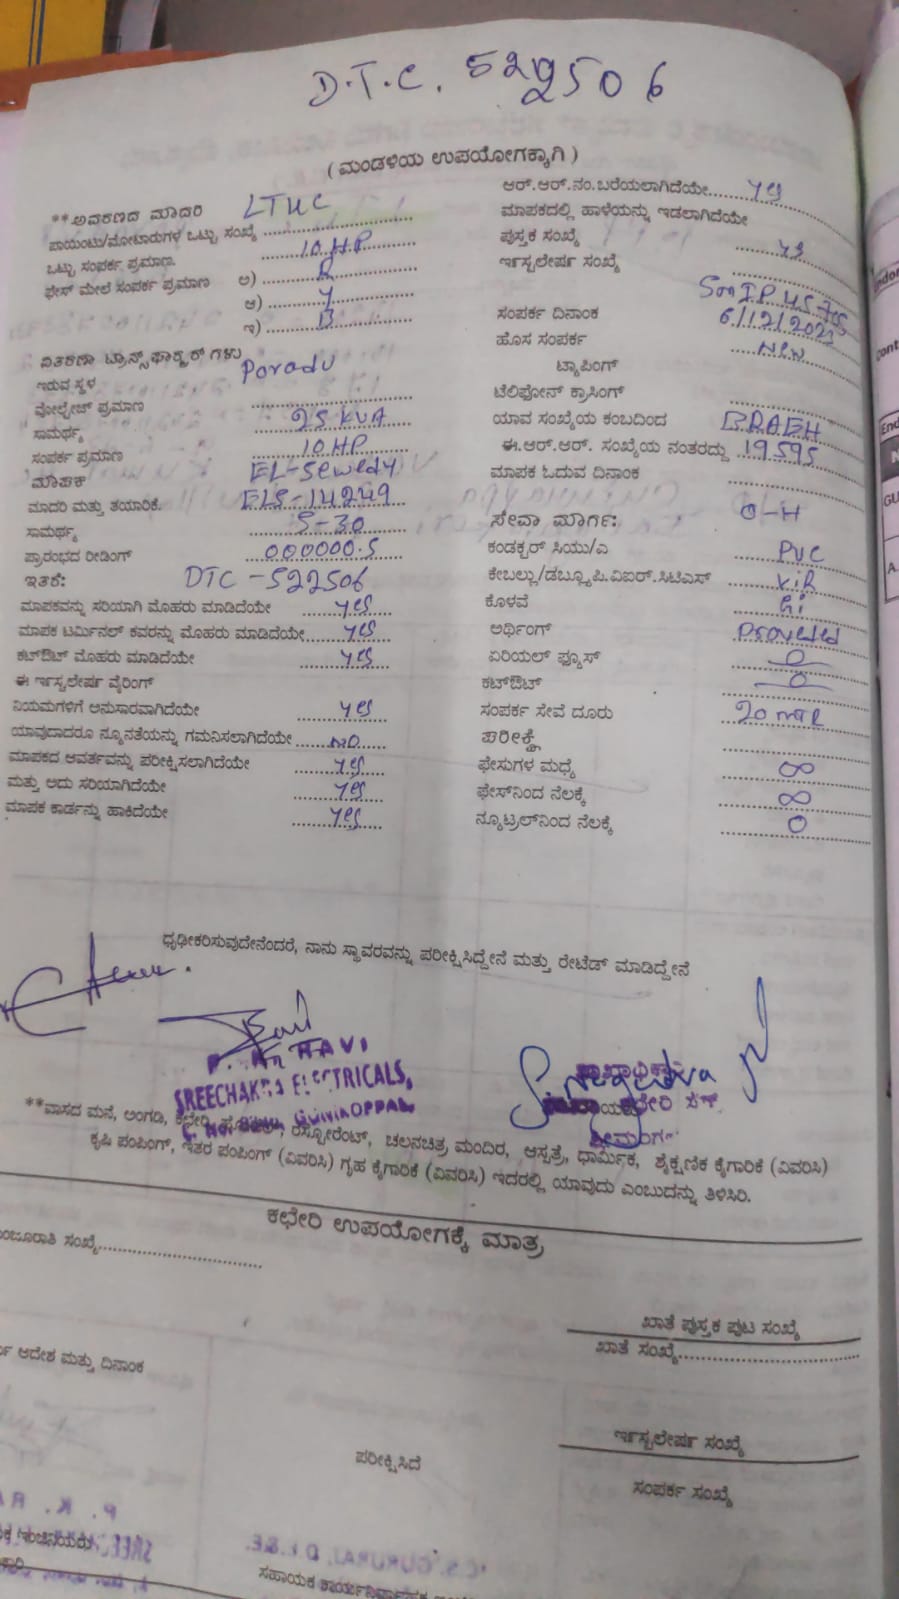 D.T.C. 522506
( ಮಂಡಳಿಯ ಉಪಯೋಗಕ್ಕಾಗಿ )
**ಅವಕಣದ ಮಾದರಿ LTUC
ಪಾಯಿಂಟು/ಮೋಟಾರುಗಳ ಒಟ್ಟು ಸಂಖ್ಯೆ
ಒಟ್ಟು ಸಂಪರ್ಕ ಪ್ರಮಾಣ. 10 HP
ಫೇಸ್ ಮೇಲೆ ಸಂಪರ್ಕ ಪ್ರಮಾಣ ಅ) R
ಆ) Y
ಇ) B
ವಿತರಣಾ ಟ್ರಾನ್ಸ್‌ಫಾರ್ಮರ್ ಗಳು
ಇರುವ ಸ್ಥಳ Poradu
ವೋಲ್ಟೇಜ್ ಪ್ರಮಾಣ
ಸಾಮರ್ಥ್ಯ 25 KVA
ಸಂಪರ್ಕ ಪ್ರಮಾಣ 10 HP
ಮಾಪಕ EL-Sewedy
ಮಾದರಿ ಮತ್ತು ತಯಾರಿಕೆ. ELS-14249
ಸಾಮರ್ಥ್ಯ 5-30
ಪ್ರಾರಂಭದ ರೀಡಿಂಗ್ 000000.5
ಇತರೆ: DTC-522506
ಮಾಪಕವನ್ನು ಸರಿಯಾಗಿ ಮೊಹರು ಮಾಡಿದೆಯೇ yes
ಮಾಪಕ ಟರ್ಮಿನಲ್ ಕವರನ್ನು ಮೊಹರು ಮಾಡಿದೆಯೇ yes
ಕಟ್‌ಔಟ್ ಮೊಹರು ಮಾಡಿದೆಯೇ yes
ಈ ಇನ್‌ಸ್ಟಲೇಷನ್ ವೈರಿಂಗ್
ನಿಯಮಗಳಿಗೆ ಅನುಸಾರವಾಗಿದೆಯೇ yes
ಯಾವುದಾದರೂ ನ್ಯೂನತೆಯನ್ನು ಗಮನಿಸಲಾಗಿದೆಯೇ NO
ಮಾಪಕದ ಆವರ್ತವನ್ನು ಪರೀಕ್ಷಿಸಲಾಗಿದೆಯೇ yes
ಮತ್ತು ಅದು ಸರಿಯಾಗಿದೆಯೇ yes
ಮಾಪಕ ಕಾರ್ಡನ್ನು ಹಾಕಿದೆಯೇ yes
ಆರ್.ಆರ್.ನಂ.ಬರೆಯಲಾಗಿದೆಯೇ yes
ಮಾಪಕದಲ್ಲಿ ಹಾಳೆಯನ್ನು ಇಡಲಾಗಿದೆಯೇ
ಪುಸ್ತಕ ಸಂಖ್ಯೆ
ಇನ್‌ಸ್ಟಲೇಷನ್ ಸಂಖ್ಯೆ
ಸಂಪರ್ಕ ದಿನಾಂಕ 6/12/2023
ಹೊಸ ಸಂಪರ್ಕ New
ಟ್ಯಾಪಿಂಗ್
ಟೆಲಿಫೋನ್ ಕ್ರಾಸಿಂಗ್
ಯಾವ ಸಂಖ್ಯೆಯ ಕಂಬದಿಂದ
ಈ.ಆರ್.ಆರ್. ಸಂಖ್ಯೆಯ ನಂತರದ್ದು 19595
ಮಾಪಕ ಓದುವ ದಿನಾಂಕ
ಸೇವಾ ಮಾರ್ಗ: O-H
ಕಂಡಕ್ಟರ್ ಸಿಯು/ಎ PVC
ಕೇಬಲ್ಲು/ಡಬ್ಲ್ಯೂಪಿ.ವಿಐರ್.ಸಿಟಿಎಸ್ ViR
ಕೊಳವೆ Gi
ಅರ್ಥಿಂಗ್ Proveded
ಏರಿಯಲ್ ಫ್ಯೂಸ್ 0
ಕಟ್‌ಔಟ್ 0
ಸಂಪರ್ಕ ಸೇವೆ ದೂರು 20 mtR
ಪರೀಕ್ಷೆ
ಫೇಸುಗಳ ಮಧ್ಯೆ ∞
ಫೇಸ್‌ನಿಂದ ನೆಲಕ್ಕೆ ∞
ನ್ಯೂಟ್ರಲ್‌ನಿಂದ ನೆಲಕ್ಕೆ 0
ಧೃಢೀಕರಿಸುವುದೇನೆಂದರೆ, ನಾನು ಸ್ಥಾವರವನ್ನು ಪರೀಕ್ಷಿಸಿದ್ದೇನೆ ಮತ್ತು ರೇಟೆಡ್ ಮಾಡಿದ್ದೇನೆ
RAVI
SREECHAKRA ELECTRICALS,
GONIKOPPAL
**ವಾಸದ ಮನೆ, ಅಂಗಡಿ, ಕಛೇರಿ, ರೆಸ್ಟೋರೆಂಟ್, ಚಲನಚಿತ್ರ ಮಂದಿರ, ಆಸ್ಪತ್ರೆ, ಧಾರ್ಮಿಕ, ಶೈಕ್ಷಣಿಕ ಕೈಗಾರಿಕೆ (ವಿವರಿಸಿ)
ಕೃಷಿ ಪಂಪಿಂಗ್, ಇತರ ಪಂಪಿಂಗ್ (ವಿವರಿಸಿ) ಗೃಹ ಕೈಗಾರಿಕೆ (ವಿವರಿಸಿ) ಇದರಲ್ಲಿ ಯಾವುದು ಎಂಬುದನ್ನು ತಿಳಿಸಿರಿ.
ಕಛೇರಿ ಉಪಯೋಗಕ್ಕೆ ಮಾತ್ರ
ಸಂಖ್ಯೆ
ಖಾತೆ ಪುಸ್ತಕ ಪುಟ ಸಂಖ್ಯೆ
ಖಾತೆ ಸಂಖ್ಯೆ
ಆದೇಶ ಮತ್ತು ದಿನಾಂಕ
ಇನ್‌ಸ್ಟಲೇಷನ್ ಸಂಖ್ಯೆ
ಪರೀಕ್ಷಿಸಿದೆ
ಸಂಪರ್ಕ ಸಂಖ್ಯೆ
ಸಹಾಯಕ